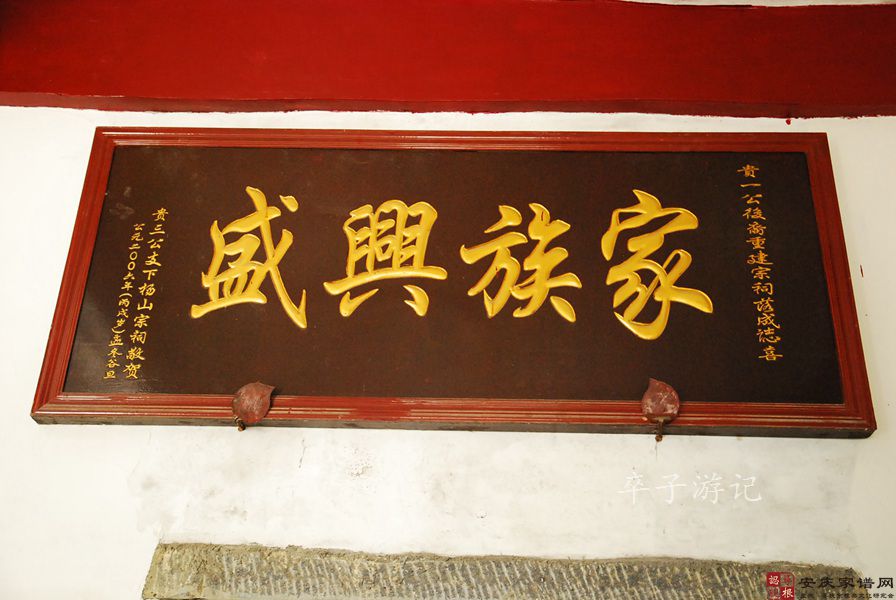 貴一公後裔重建宗祠落成誌喜
家族興盛
貴三公支下楊山宗祠敬賀
公元二〇〇六年(丙戌岁)孟冬谷旦
卒子游记
安庆家谱网